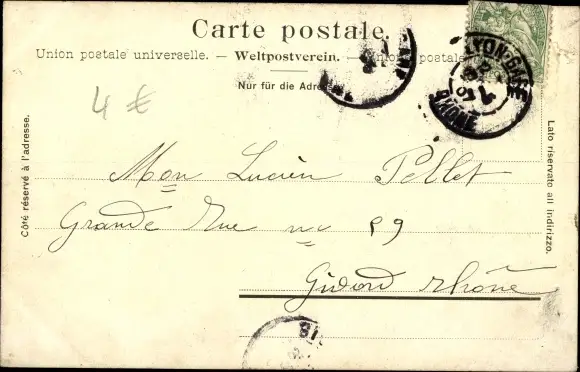 Carte postale.
Union postale universelle. — Weltpostverein. — Unione postale
Nur für die Adresse
4 €
LYON-GARE
RHONE
Côté réservé à l'adresse.
Lato riservato all indirizzo.
Mon Lucien Pellet
Grande Rue no 89
Givord Rhône